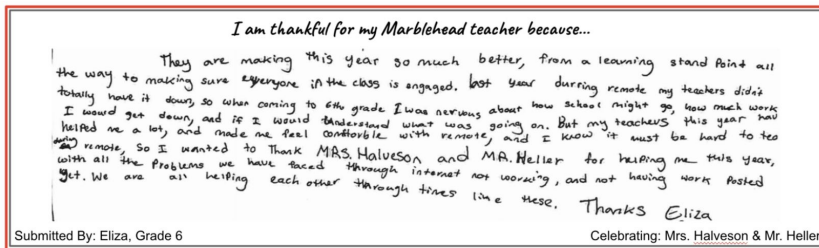 I am thankful for my Marblehead teacher because...
They are making this year so much better, from a learning stand Point all
the way to making sure everyone in the class is engaged. last year durring remote my teachers didn't
totally have it down, so when coming to 6th grade I was nervous about how school might go, how much work
I would get down, and if I would understand what was going on. But my teachers this year hav
helped me a lot, and made me feel comforble with remote, and I know it must be hard to tea
during remote, So I wanted to Thank MRS. Halveson and MR. Heller for helping me this year,
with all the Problems we have faced through internet not working, and not having work Posted
yet. We are all helping each other through times like these. Thanks Eliza
Submitted By: Eliza, Grade 6
Celebrating: Mrs. Halveson & Mr. Heller